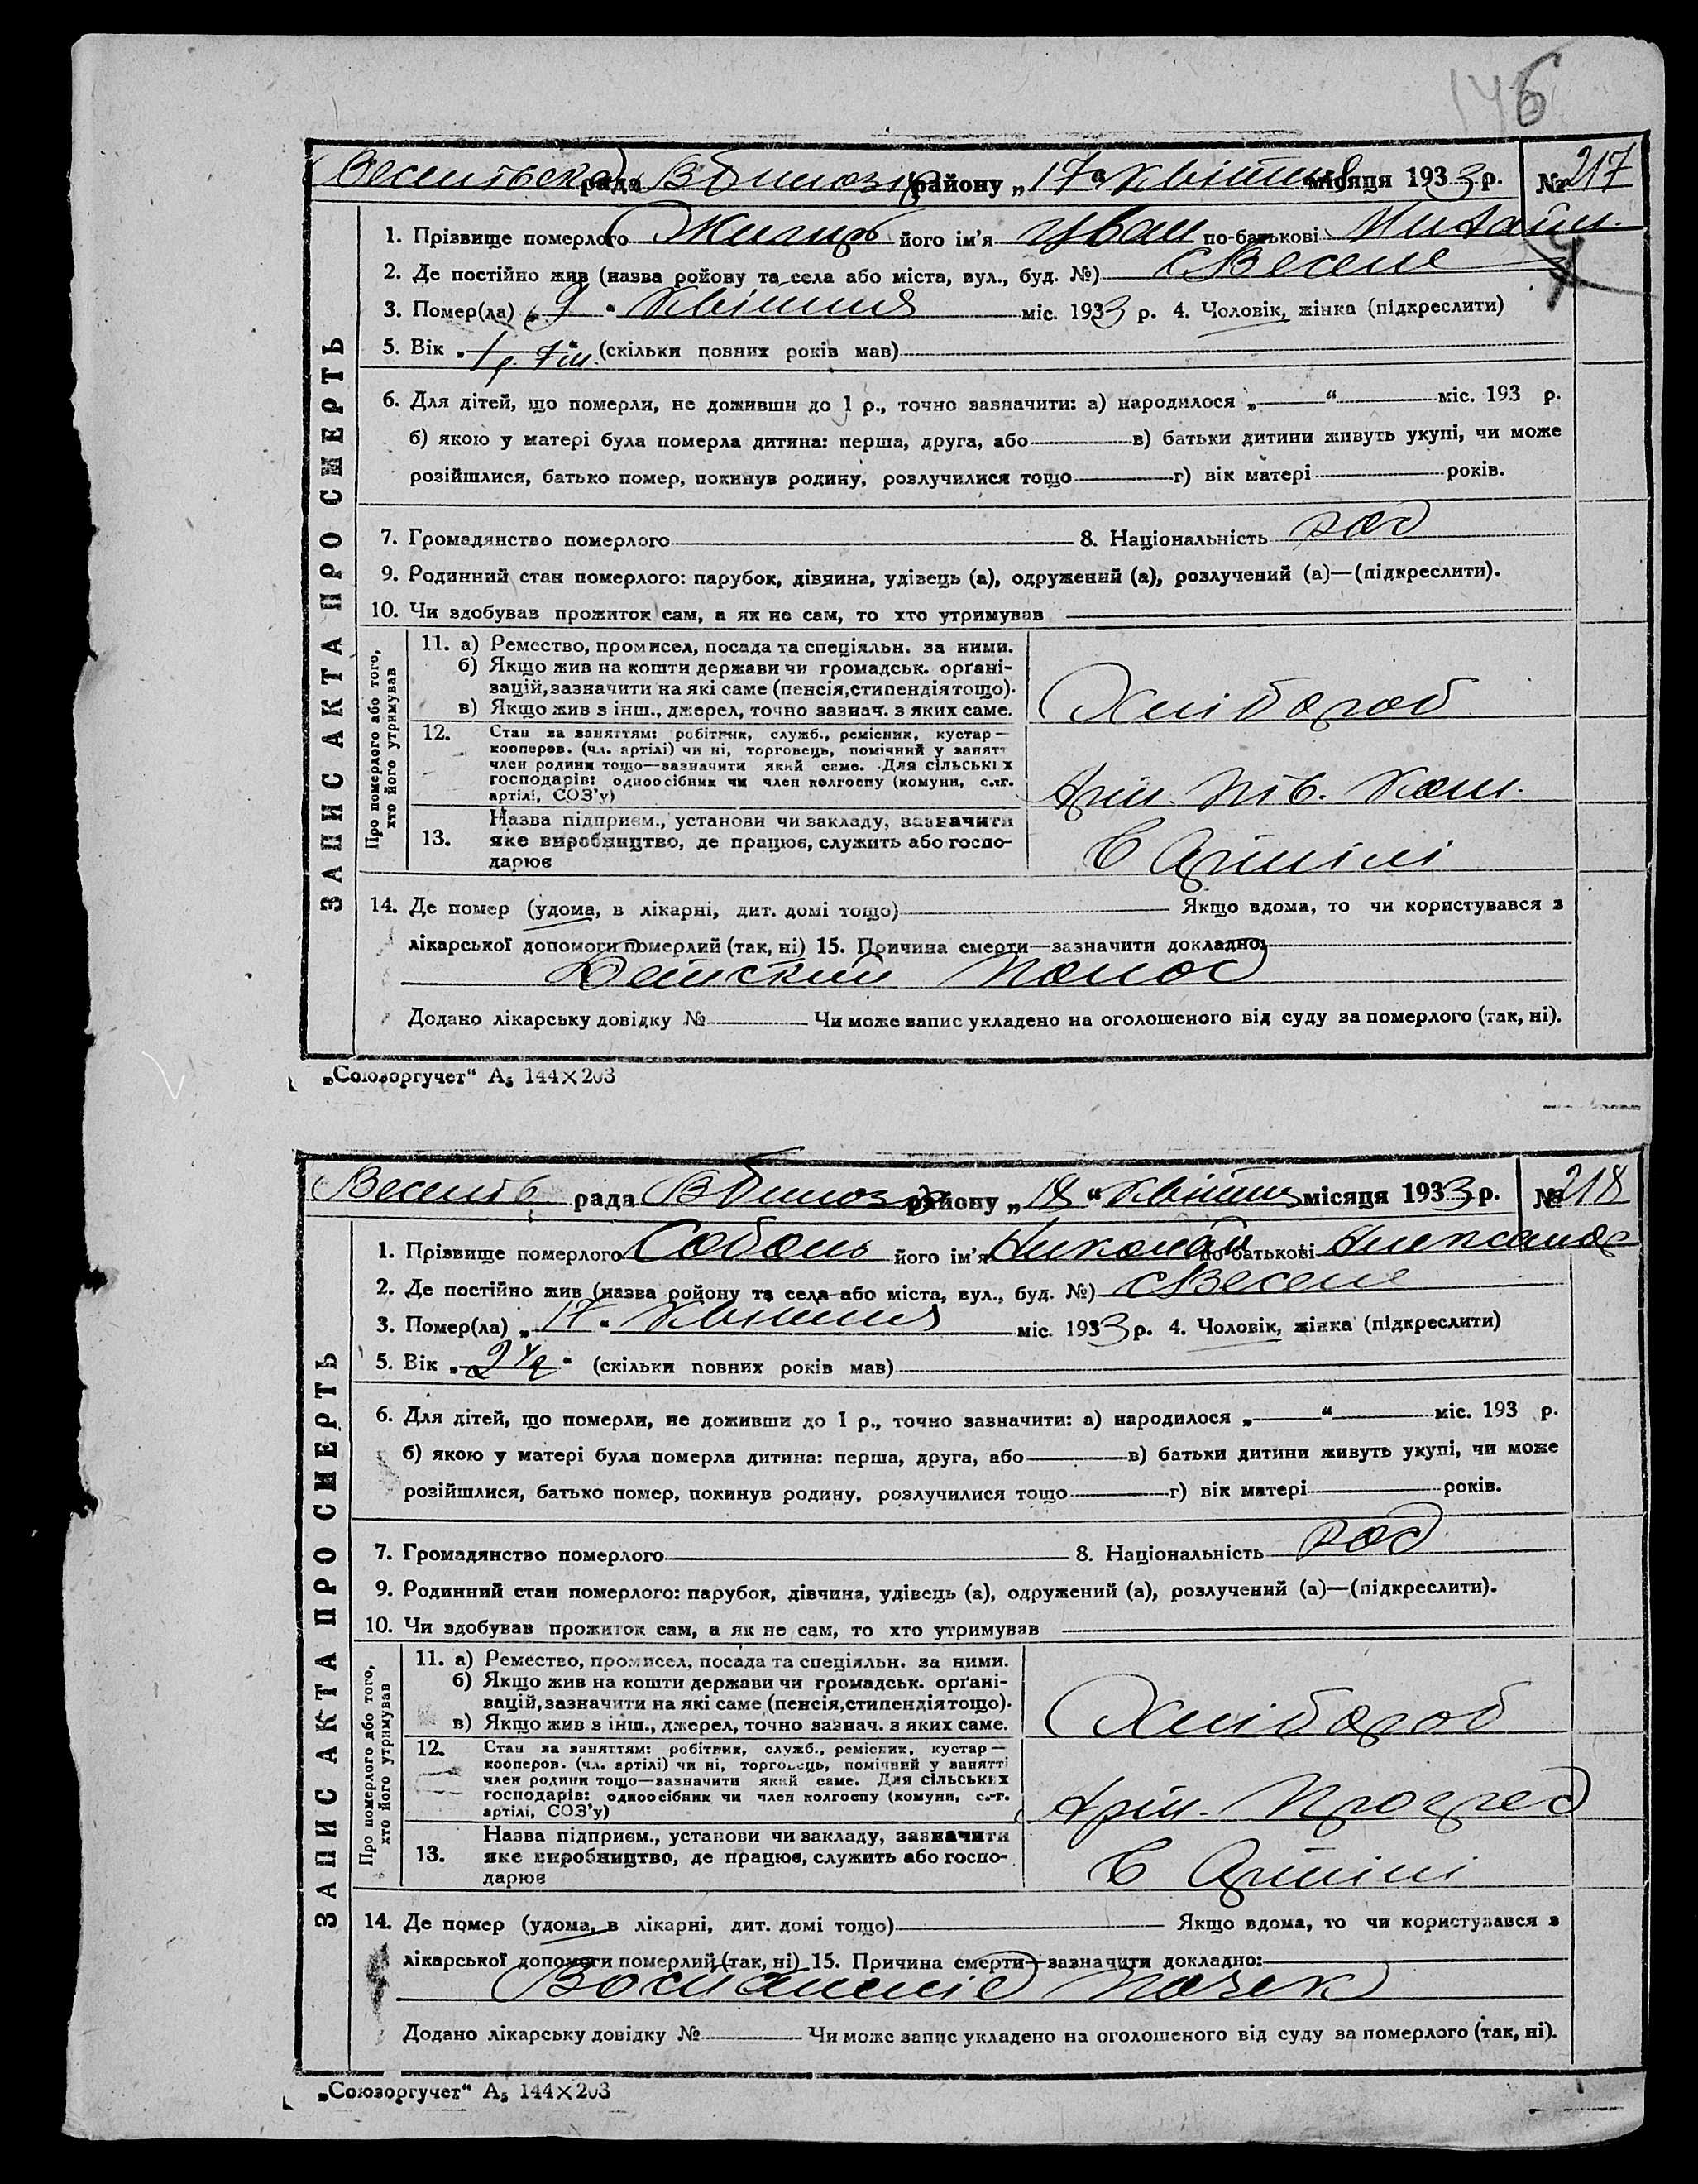 146
рада В Білозір району „17“ квітня місяця 1933 р. № 217
ЗАПИС АКТА ПРО СМЕРТЬ
1. Прізвище померлого його ім'я Иван по-батькові Михайл.
2. Де постійно жив (назва ройону та села або міста, вул., буд. №) с Веселе
3. Помер(ла) „9“ Квітня міс. 1933 р. 4. Чоловік, жінка (підкреслити)
5. Вік „1 р. 7 м.“ (скільки повних років мав)
6. Для дітей, що померли, не доживши до 1 р., точно зазначити: а) народилося „ “ міс. 193 р.
б) якою у матері була померла дитина: перша, друга, або в) батьки дитини живуть укупі, чи може
розійшлися, батько помер, покинув родину, розлучилися тощо г) вік матері років.
7. Громадянство померлого 8. Національність
9. Родинний стан померлого: парубок, дівчина, удівець (а), одружений (а), розлучений (а)—(підкреслити).
10. Чи здобував прожиток сам, а як не сам, то хто утримував
Про померлого або того, хто його утримував
11. а) Ремество, промисел, посада та спеціяльн. за ними.
б) Якщо жив на кошти держави чи громадськ. органі-
зацій, зазначити на які саме (пенсія, стипендія тощо).
в) Якщо жив з інш., джерел, точно зазнач. з яких саме.
Хлібороб
12. Стан за заняттям: робітник, служб., ремісник, кустар—
кооперов. (чл. артілі) чи ні, торговець, помічний у занятт
член родини тощо—зазначити який саме. Для сільських
господарів: одноосібник чи член колгоспу (комуни, с.-г.
артілі, СОЗ'у)
Арт.
13. Назва підприєм., установи чи закладу, зазначити
яке виробництво, де працює, служить або госпо-
дарює
В Артілі
14. Де помер (удома, в лікарні, дит. домі тощо) Якщо вдома, то чи користувався з
лікарської допомоги померлий (так, ні) 15. Причина смерти—зазначити докладно:
Детский Понос
Додано лікарську довідку № Чи може запис укладено на оголошеного від суду за померлого (так, ні).
„Союзоргучет“ А5 144×203
рада В Білозір району „18“ квітня місяця 1933 р. № 218
ЗАПИС АКТА ПРО СМЕРТЬ
1. Прізвище померлого Соболь його ім'я Николай по-батькові Александр
2. Де постійно жив (назва ройону та села або міста, вул., буд. №) с Веселе
3. Помер(ла) „17“ Квітня міс. 1933 р. 4. Чоловік, жінка (підкреслити)
5. Вік (скільки повних років мав)
6. Для дітей, що померли, не доживши до 1 р., точно зазначити: а) народилося „ “ міс. 193 р.
б) якою у матері була померла дитина: перша, друга, або в) батьки дитини живуть укупі, чи може
розійшлися, батько помер, покинув родину, розлучилися тощо г) вік матері років.
7. Громадянство померлого 8. Національність
9. Родинний стан померлого: парубок, дівчина, удівець (а), одружений (а), розлучений (а)—(підкреслити).
10. Чи здобував прожиток сам, а як не сам, то хто утримував
Про померлого або того, хто його утримував
11. а) Ремество, промисел, посада та спеціяльн. за ними.
б) Якщо жив на кошти держави чи громадськ. органі-
зацій, зазначити на які саме (пенсія, стипендія тощо).
в) Якщо жив з інш., джерел, точно зазнач. з яких саме.
Хлібороб
12. Стан за заняттям: робітник, служб., ремісник, кустар—
кооперов. (чл. артілі) чи ні, торговець, помічний у занятті
член родини тощо—зазначити який саме. Для сільських
господарів: одноосібник чи член колгоспу (комуни, с.-г.
артілі, СОЗ'у)
Арт. Прогрес
13. Назва підприєм., установи чи закладу, зазначити
яке виробництво, де працює, служить або госпо-
дарює
В Артілі
14. Де помер (удома, в лікарні, дит. домі тощо) Якщо вдома, то чи користувався з
лікарської допомоги померлий (так, ні) 15. Причина смерти—зазначити докладно:
Воспаление Почек
Додано лікарську довідку № Чи може запис укладено на оголошеного від суду за померлого (так, ні).
„Союзоргучет“ А5 144×203